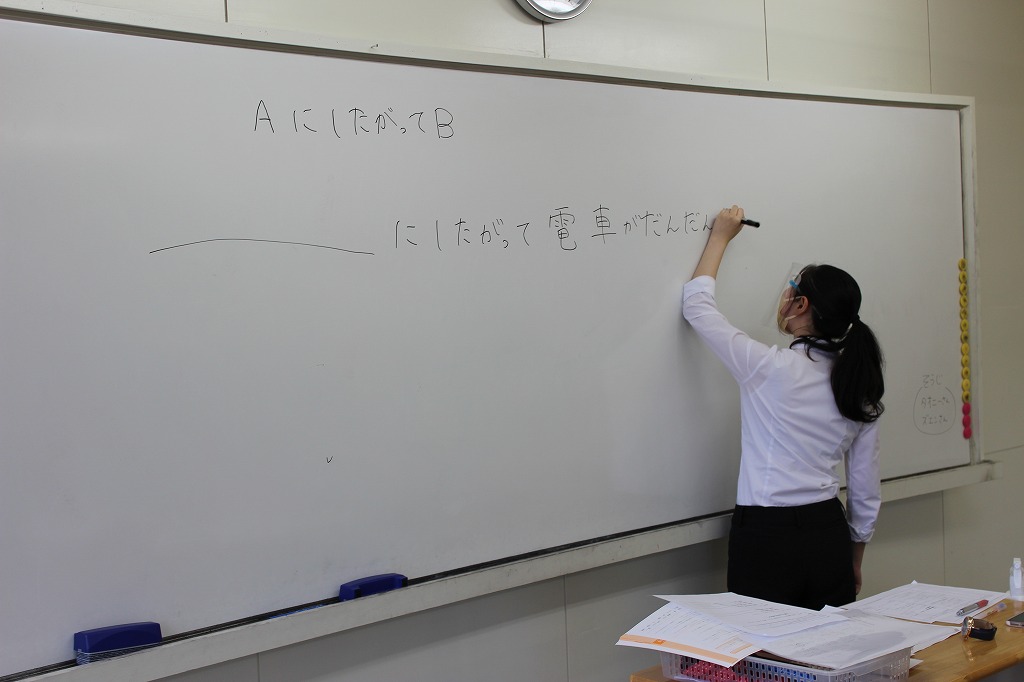 AにしたがってB
にしたがって電車がだんだん
そうじ